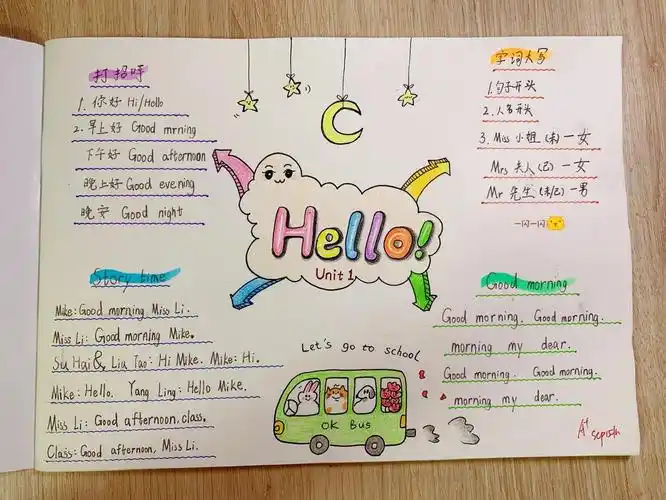 打招呼
1. 你好 Hi/Hello
2. 早上好 Good mrning
下午好 Good afternoon
晚上好 Good evening
晚安 Good night
Story time
Mike: Good morning Miss Li.
Miss Li: Good morning Mike.
Su Hai & Liu Tao: Hi Mike. Mike: Hi.
Mike: Hello. Yang Ling: Hello Mike.
Miss Li: Good afternoon, class.
Class: Good afternoon, Miss Li.
Hello!
Unit 1
Let's go to school
OK Bus
字词大写
1. 句子开头
2. 人名开头
3. Miss 小姐 (未) 一女
Mrs 夫人 (已) 一女
Mr 先生 (未/已) 一男
Good morning
Good morning. Good morning.
morning my dear.
Good morning. Good morning.
morning my dear.
A+